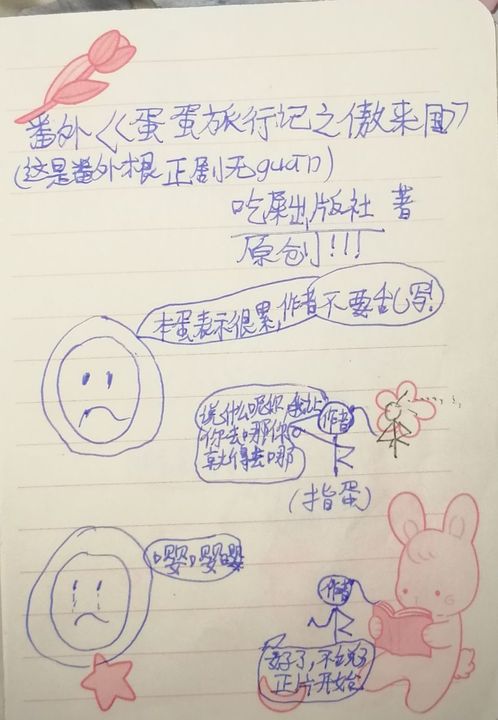 番外《蛋蛋旅行记之傲来国》
(这是番外根正剧无guan)
吃屎出版社 著
原创!!!
本蛋表示很累,作者不要乱写!
说什么呢你,我让
你去哪你
就得去哪
作者
(指蛋)
嘤嘤嘤
作者
好了,不说了
正片开始